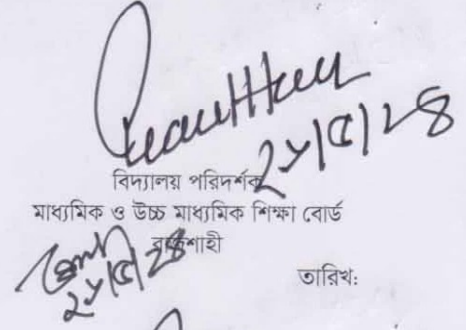 ২৮/৫/২৪
বিদ্যালয় পরিদর্শক
মাধ্যমিক ও উচ্চ মাধ্যমিক শিক্ষা বোর্ড
রাজশাহী
তারিখ: